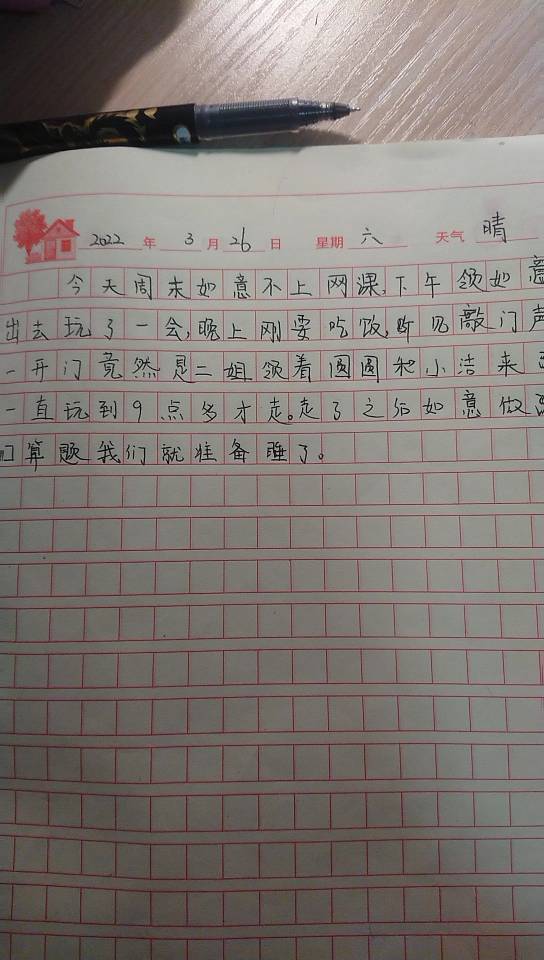 2022年3月26日 星期六 天气晴
今天周末如意不上网课,下午领如意
出去玩了一会,晚上刚要吃饭,听见敲门声
一开门竟然是二姐领着圆圆和小洁来
一直玩到9点多才走。走了之后如意做
口算题我们就准备睡了。